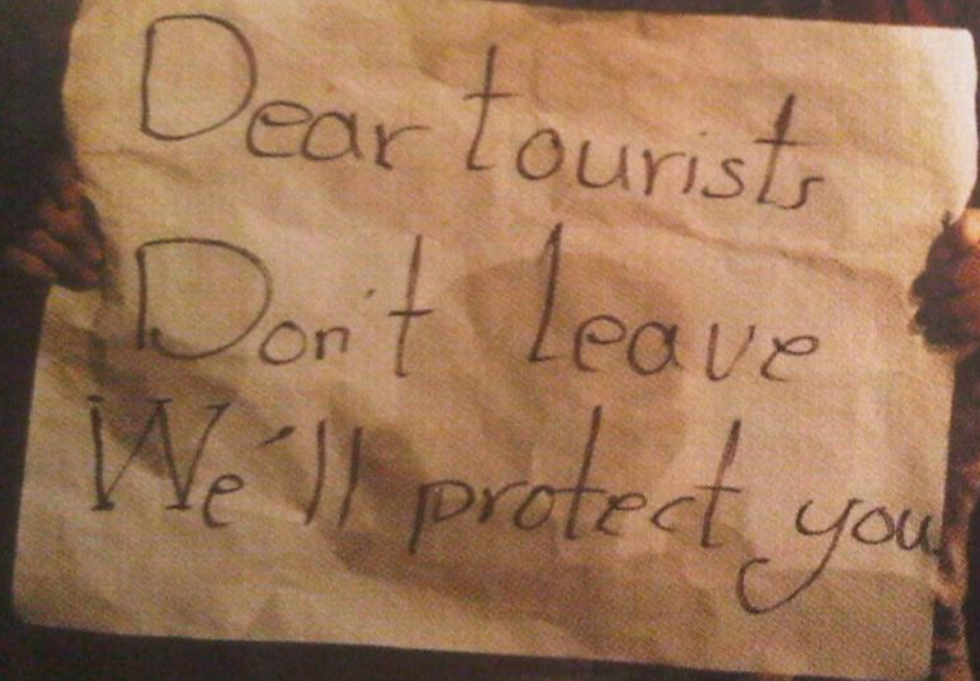 Dear tourists
Don't Leave
We'll protect you